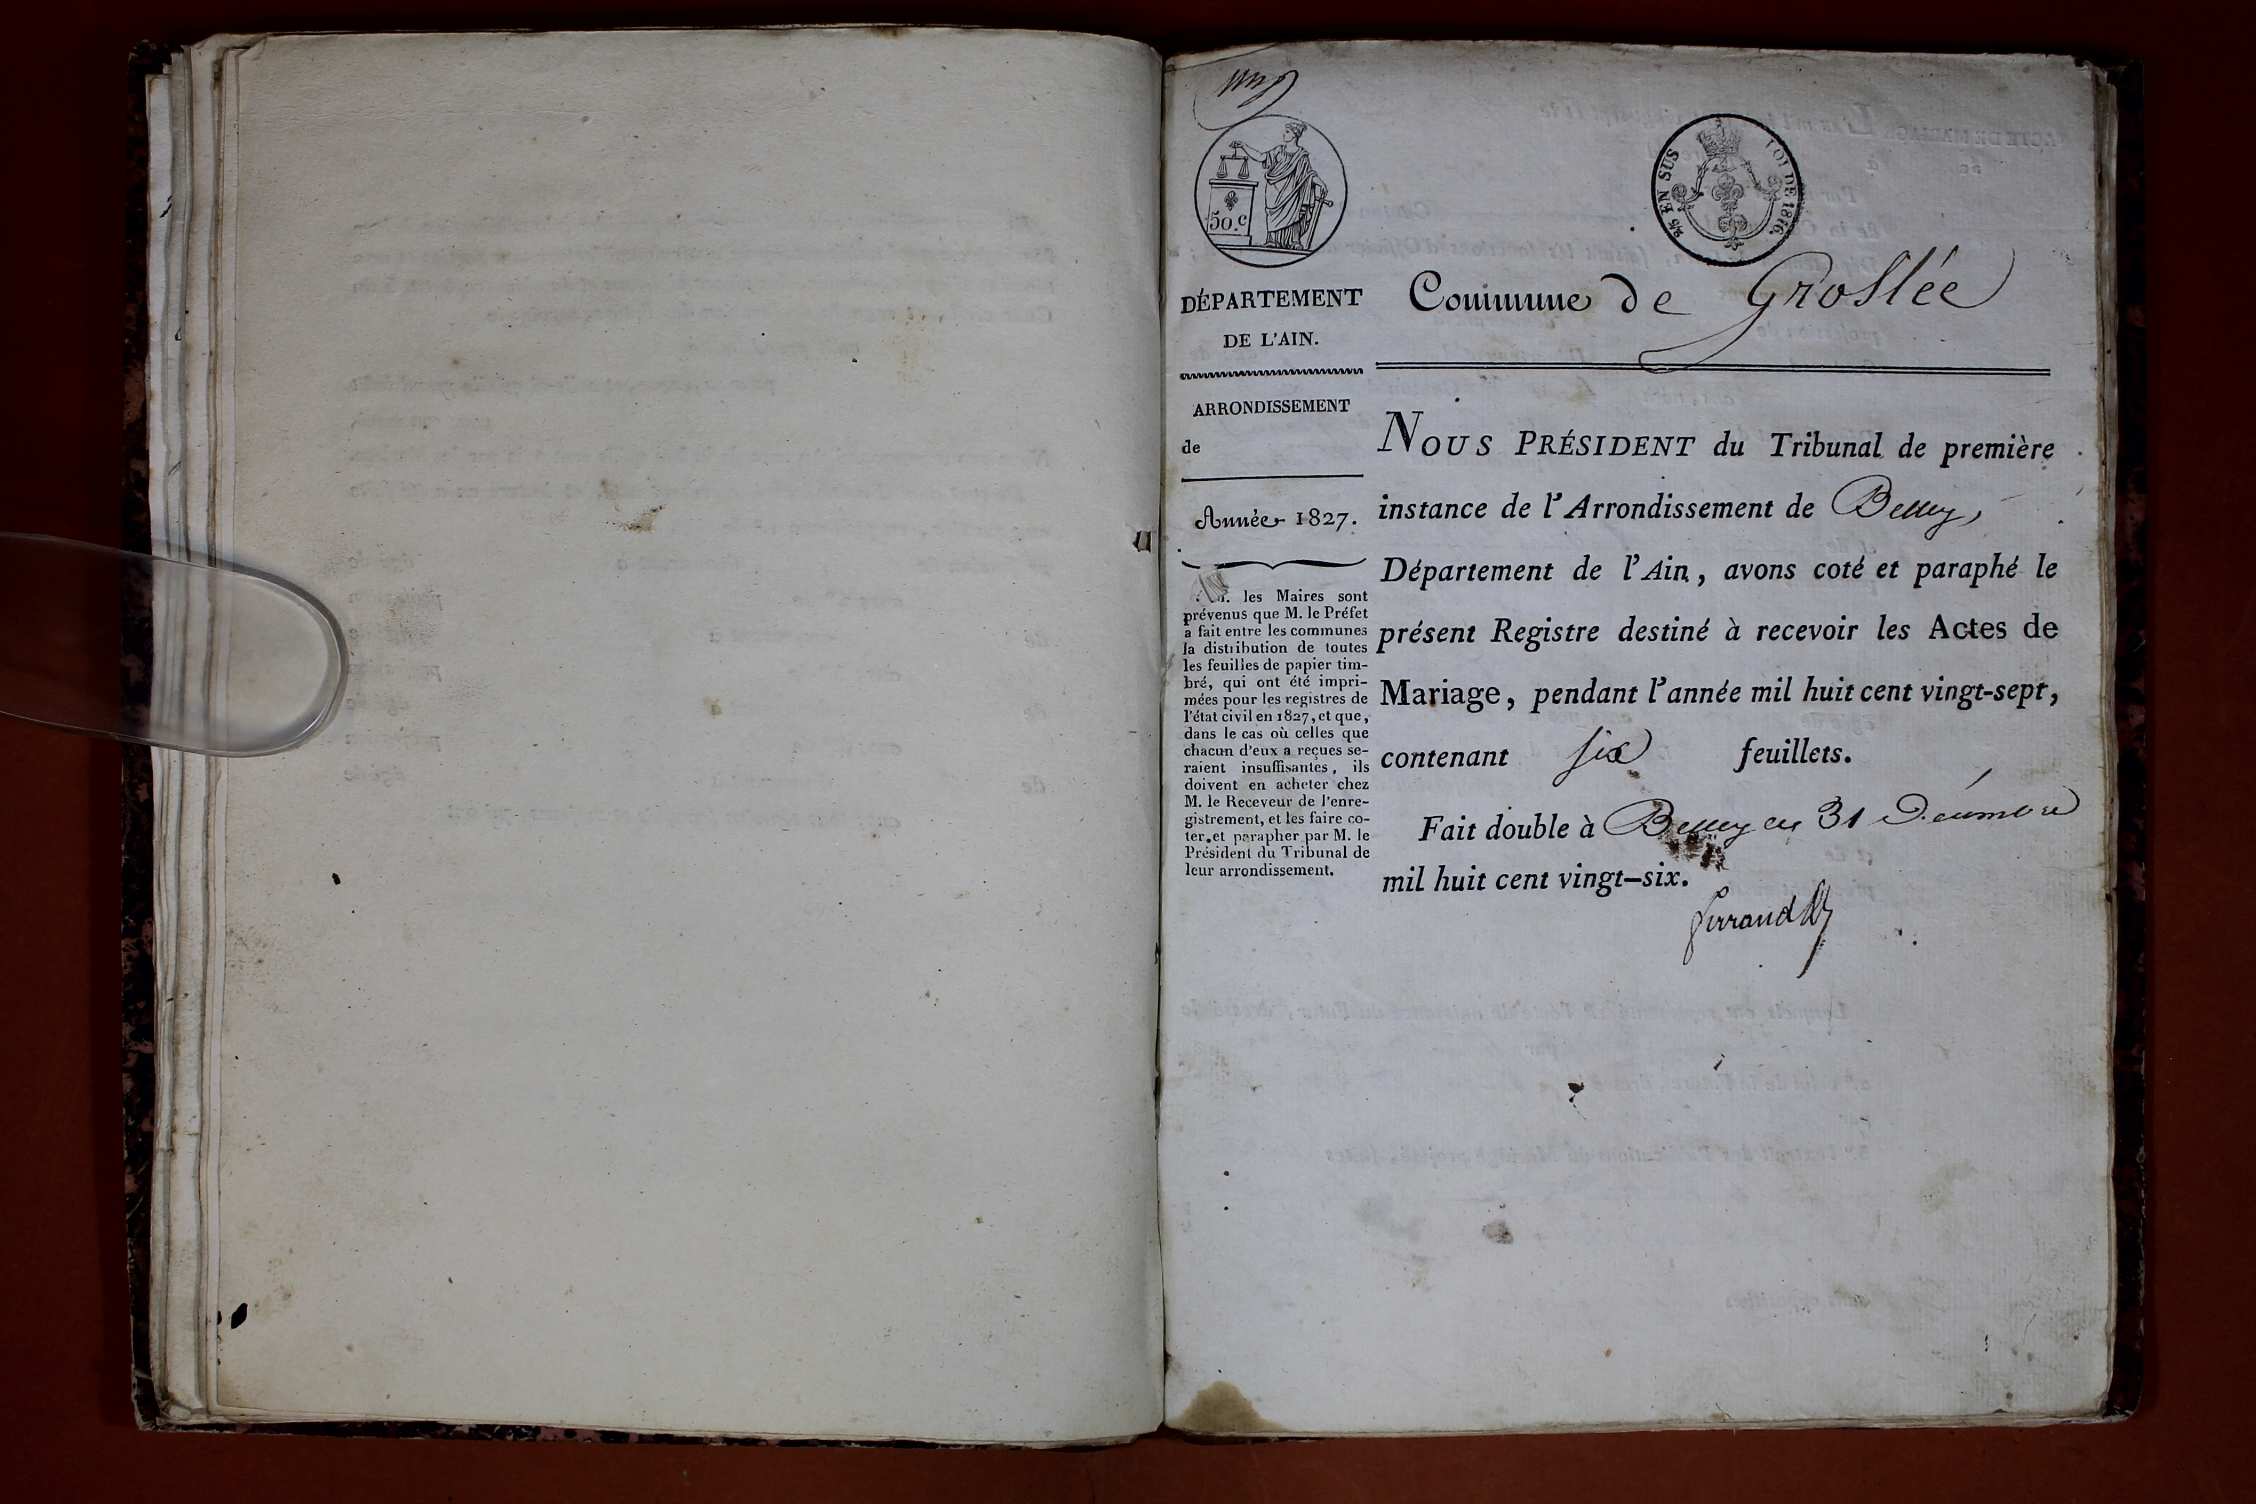 50. c
2/5 EN SUS LOI DE 1816.
DÉPARTEMENT
DE L'AIN.
ARRONDISSEMENT
de
Année 1827.
les Maires sont
prévenus que M. le Préfet
a fait entre les communes
la distribution de toutes
les feuilles de papier tim-
bré, qui ont été impri-
mées pour les registres de
l'état civil en 1827, et que,
dans le cas où celles que
chacun d'eux a reçues se-
raient insuffisantes, ils
doivent en acheter chez
M. le Receveur de l'enre-
gistrement, et les faire co-
ter et parapher par M. le
Président du Tribunal de
leur arrondissement.
Commune de Groslée
NOUS PRÉSIDENT du Tribunal de première
instance de l'Arrondissement de Belley,
Département de l'Ain, avons coté et paraphé le
présent Registre destiné à recevoir les Actes de
Mariage, pendant l'année mil huit cent vingt-sept,
contenant six feuillets.
Fait double à Belley ce 31 Décembre
mil huit cent vingt-six.